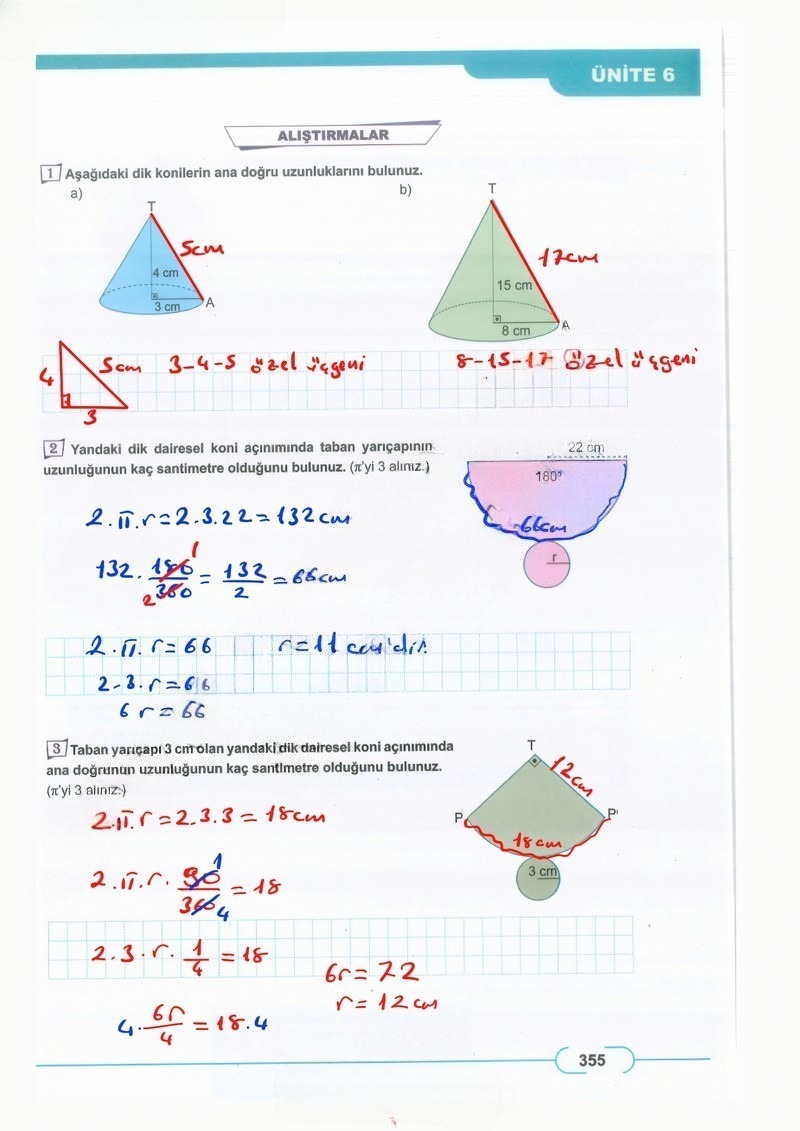 ÜNİTE 6
ALIŞTIRMALAR
1 Aşağıdaki dik konilerin ana doğru uzunluklarını bulunuz.
a)
b)
T
5cm
4 cm
3 cm
A
T
17cm
15 cm
8 cm
A
4
5cm
3
3-4-5 özel üçgeni
8-15-17 özel üçgeni
2 Yandaki dik dairesel koni açınımında taban yarıçapının
uzunluğunun kaç santimetre olduğunu bulunuz. (π'yi 3 alınız.)
22 cm
180°
66cm
r
2.π.r=2.3.22=132cm
132 . 180/360 = 132/2 = 66cm
1
2
2.π.r=66
r=11 cm'dir.
2.3.r=66
6r=66
3 Taban yarıçapı 3 cm olan yandaki dik dairesel koni açınımında
ana doğrunun uzunluğunun kaç santimetre olduğunu bulunuz.
(π'yi 3 alınız.)
T
12cm
P
P'
18cm
3 cm
2.π.r=2.3.3=18cm
2.π.r. 90/360 = 18
1
4
2.3.r. 1/4 = 18
6r=72
r=12cm
4. 6r/4 = 18.4
355